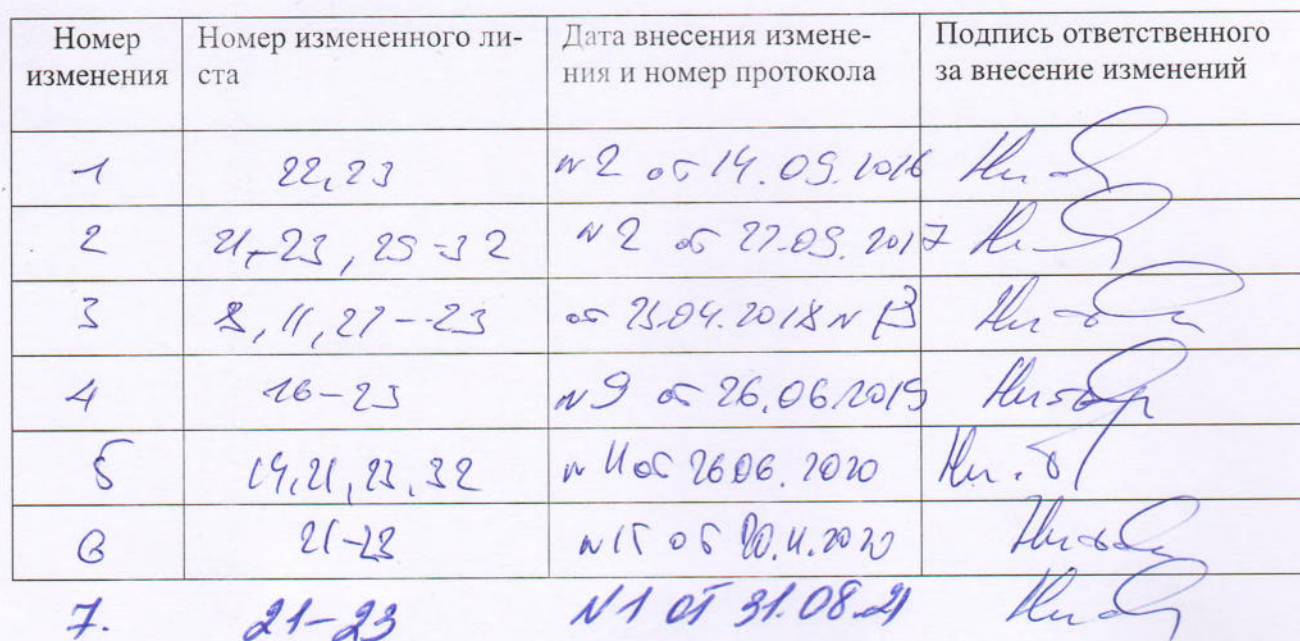 Номер изменения | Номер измененного ли-ста | Дата внесения измене-ния и номер протокола | Подпись ответственного за внесение изменений
1 | 22,23 | N2 от 14.09.2016
2 | 21-23, 29-32 | N2 от 27.09.2017
3 | 8, 11, 21--23 | от 25.04.2018 N 13
4 | 16-23 | N9 от 26.06.2019
5 | 19,21,23,32 | N 11 от 26.06.2020
6 | 21-23 | N15 от 20.11.2020
7. | 21-23 | N1 от 31.08.21